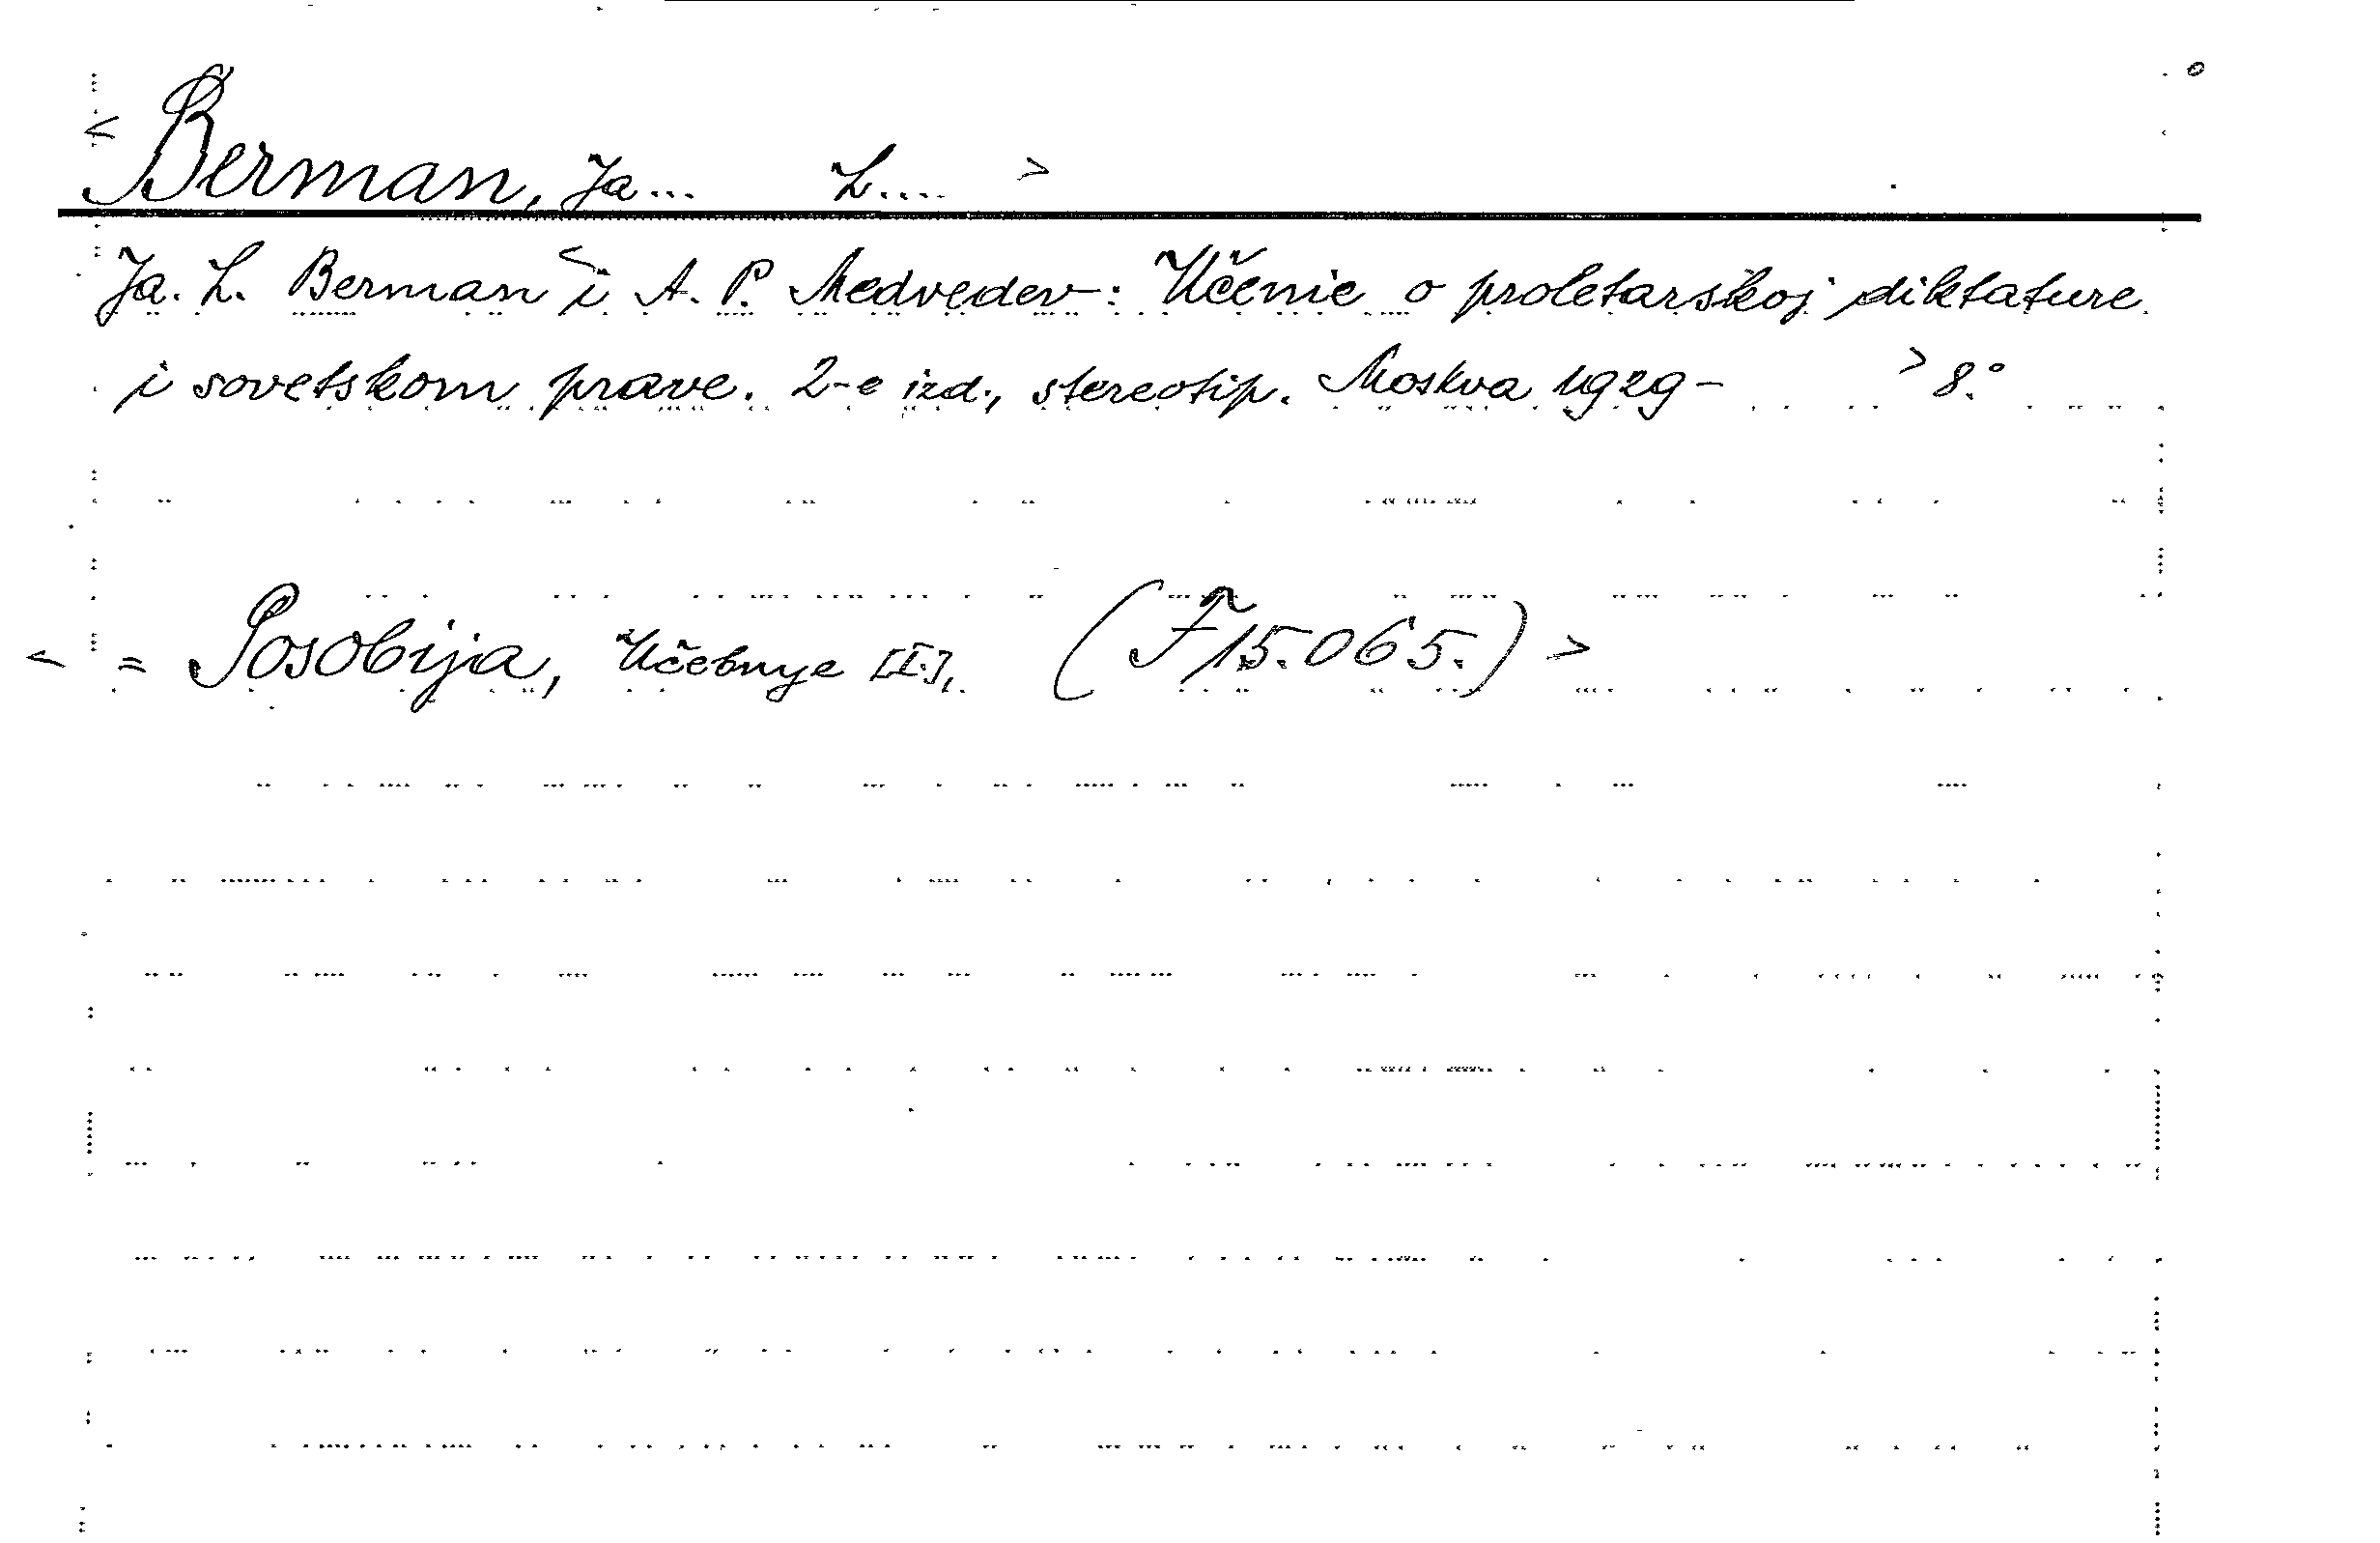 < Berman, Ja... L.... >
Ja. L. Berman < i A. P. Medvedev: Učenie o proletarskoj diktature
i sovetskom prave. 2-e izd., stereotip. Moskva 1929- > 8.°
< = Posobija, Učebnye [I.], (F 15.065.) >